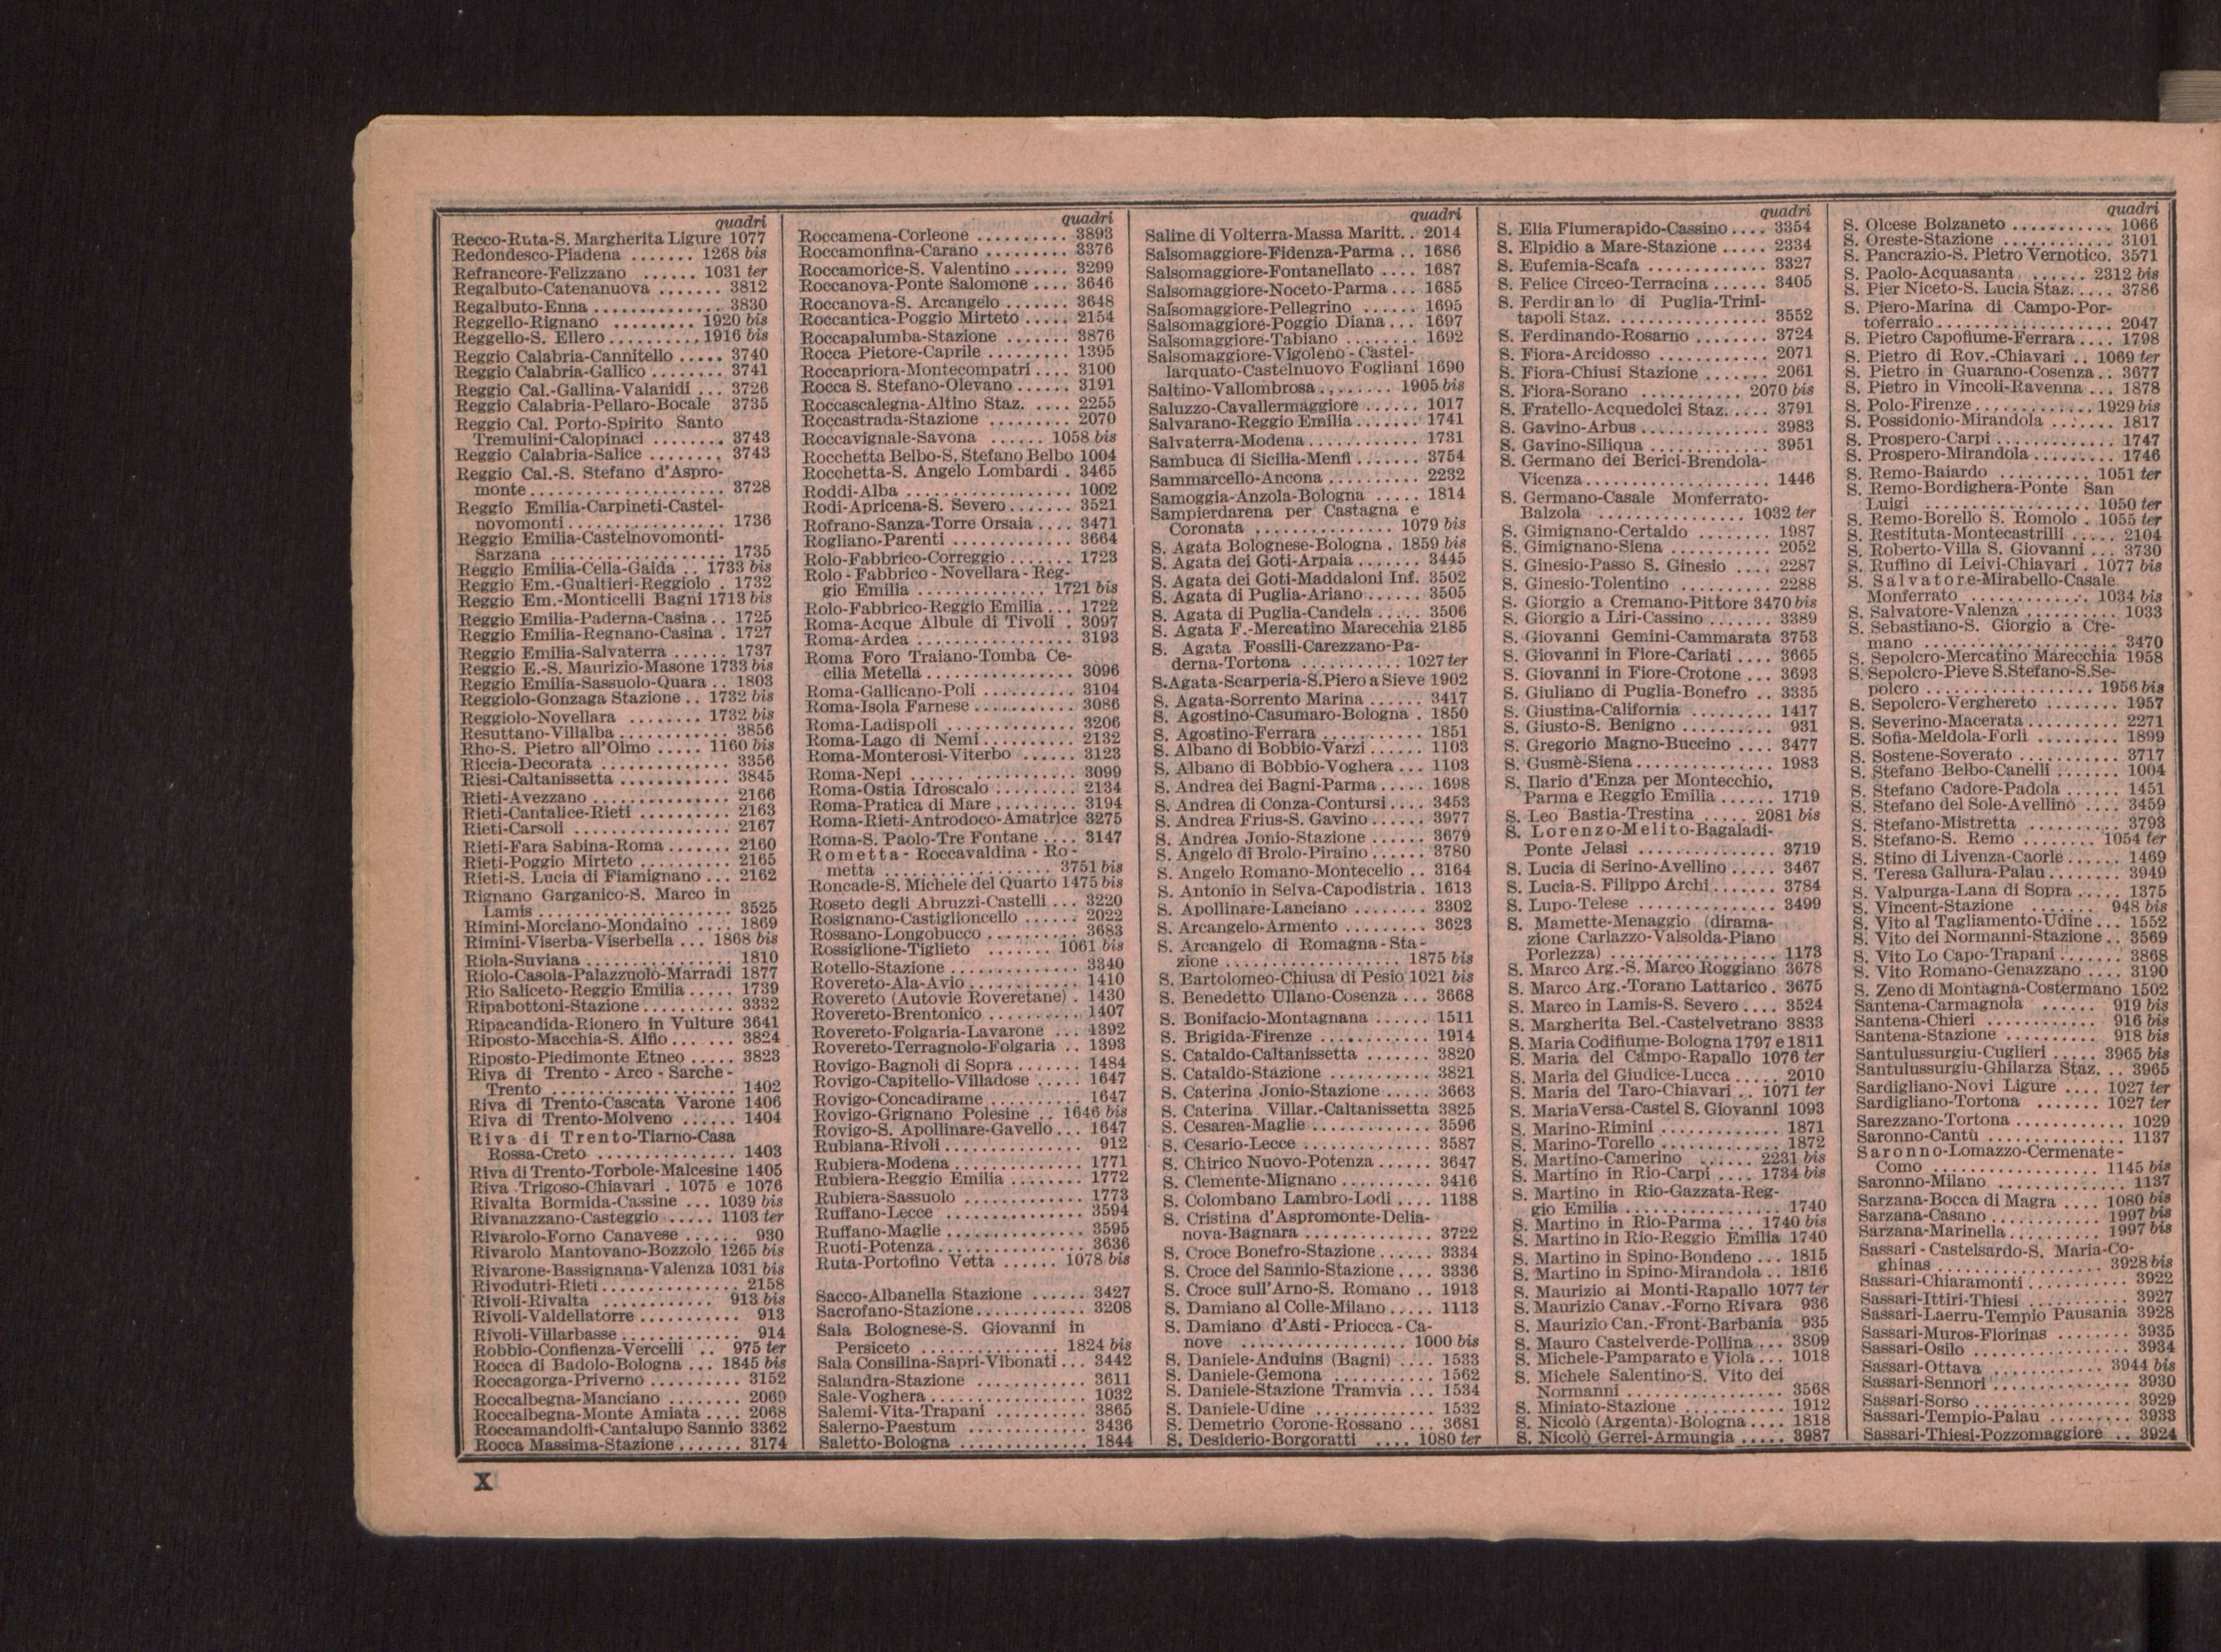 quadri
Recco-Ruta-S. Margherita Ligure 1077
Redondesco-Piadena ....... 1268 bis
Refrancore-Felizzano ...... 1031 ter
Regalbuto-Catenanuova ....... 3812
Regalbuto-Enna .............. 3830
Reggello-Rignano ......... 1920 bis
Reggello-S. Ellero .......... 1916 bis
Reggio Calabria-Cannitello ..... 3740
Reggio Calabria-Gallico ........ 3741
Reggio Cal.-Gallina-Valanidi ... 3726
Reggio Calabria-Pellaro-Bocale 3735
Reggio Cal. Porto-Spirito Santo
Tremulini-Calopinaci ........ 3743
Reggio Calabria-Salice ........ 3743
Reggio Cal.-S. Stefano d'Aspro-
monte ...................... 3728
Reggio Emilia-Carpineti-Castel-
novomonti ................ 1736
Reggio Emilia-Castelnovomonti-
Sarzana .................. 1735
Reggio Emilia-Cella-Gaida .. 1733 bis
Reggio Em.-Gualtieri-Reggiolo . 1732
Reggio Em.-Monticelli Bagni 1713 bis
Reggio Emilia-Paderna-Casina .. 1725
Reggio Emilia-Regnano-Casina . 1727
Reggio Emilia-Salvaterra ...... 1737
Reggio E.-S. Maurizio-Masone 1733 bis
Reggio Emilia-Sassuolo-Quara .. 1803
Reggiolo-Gonzaga Stazione .. 1732 bis
Reggiolo-Novellara ........ 1732 bis
Resuttano-Villalba ............ 3856
Rho-S. Pietro all'Olmo ..... 1160 bis
Riccia-Decorata .............. 3356
Riesi-Caltanissetta ............ 3845
Rieti-Avezzano ............... 2166
Rieti-Cantalice-Rieti .......... 2163
Rieti-Carsoli ................ 2167
Rieti-Fara Sabina-Roma ....... 2160
Rieti-Poggio Mirteto .......... 2165
Rieti-S. Lucia di Fiamignano ... 2162
Rignano Garganico-S. Marco in
Lamis ..................... 3525
Rimini-Morciano-Mondaino .... 1869
Rimini-Viserba-Viserbella ... 1868 bis
Riola-Suviana ................ 1810
Riolo-Casola-Palazzuolo-Marradi 1877
Rio Saliceto-Reggio Emilia ..... 1739
Ripabottoni-Stazione .......... 3332
Ripacandida-Rionero in Vulture 3641
Riposto-Macchia-S. Alfio ... ... 3824
Riposto-Piedimonte Etneo ..... 3823
Riva di Trento - Arco - Sarche -
Trento .................... 1402
Riva di Trento-Cascata Varone 1406
Riva di Trento-Molveno ...... 1404
Riva di Trento-Tiarno-Casa
Rossa-Creto ............... 1403
Riva di Trento-Torbole-Malcesine 1405
Riva Trigoso-Chiavari . 1075 e 1076
Rivalta Bormida-Cassine ... 1039 bis
Rivanazzano-Casteggio ..... 1103 ter
Rivarolo-Forno Canavese ...... 930
Rivarolo Mantovano-Bozzolo 1265 bis
Rivarone-Bassignana-Valenza 1031 bis
Rivodutri-Rieti ............... 2158
Rivoli-Rivalta ............ 913 bis
Rivoli-Valdellatorre ........... 913
Rivoli-Villarbasse ............. 914
Robbio-Confienza-Vercelli .. 975 ter
Rocca di Badolo-Bologna ... 1845 bis
Roccagorga-Priverno .......... 3152
Roccalbegna-Manciano ........ 2069
Roccalbegna-Monte Amiata .... 2068
Roccamandolfi-Cantalupo Sannio 3362
Rocca Massima-Stazione ....... 3174
quadri
Roccamena-Corleone .......... 3893
Roccamonfina-Carano ......... 3376
Roccamorice-S. Valentino ...... 3299
Roccanova-Ponte Salomone .... 3646
Roccanova-S. Arcangelo ....... 3648
Roccantica-Poggio Mirteto ..... 2154
Roccapalumba-Stazione ....... 3876
Rocca Pietore-Caprile ......... 1395
Roccapriora-Montecompatri .... 3100
Rocca S. Stefano-Olevano ...... 3191
Roccascalegna-Altino Staz. .... 2255
Roccastrada-Stazione ......... 2070
Roccavignale-Savona ...... 1058 bis
Rocchetta Belbo-S. Stefano Belbo 1004
Rocchetta-S. Angelo Lombardi . 3465
Roddi-Alba .................. 1002
Rodi-Apricena-S. Severo ....... 3521
Rofrano-Sanza-Torre Orsaia .... 3471
Rogliano-Parenti ............. 3664
Rolo-Fabbrico-Correggio ....... 1723
Rolo - Fabbrico - Novellara - Reg-
gio Emilia .............. 1721 bis
Rolo-Fabbrico-Reggio Emilia ... 1722
Roma-Acque Albule di Tivoli . 3097
Roma-Ardea ................. 3193
Roma Foro Traiano-Tomba Ce-
cilia Metella ................ 3096
Roma-Gallicano-Poli .......... 3104
Roma-Isola Farnese ........... 3086
Roma-Ladispoli .............. 3206
Roma-Lago di Nemi .......... 2132
Roma-Monterosi-Viterbo ...... 3123
Roma-Nepi .................. 3099
Roma-Ostia Idroscalo ......... 2134
Roma-Pratica di Mare ......... 3194
Roma-Rieti-Antrodoco-Amatrice 3275
Roma-S. Paolo-Tre Fontane .... 3147
Rometta - Roccavaldina - Ro-
metta .................. 3751 bis
Roncade-S. Michele del Quarto 1475 bis
Roseto degli Abruzzi-Castelli ... 3220
Rosignano-Castiglioncello ...... 2022
Rossano-Longobucco .......... 3683
Rossiglione-Tiglieto ....... 1061 bis
Rotello-Stazione .............. 3340
Rovereto-Ala-Avio ............ 1410
Rovereto (Autovie Roveretane) . 1430
Rovereto-Brentonico .......... 1407
Rovereto-Folgaria-Lavarone ... 1392
Rovereto-Terragnolo-Folgaria .. 1393
Rovigo-Bagnoli di Sopra ....... 1484
Rovigo-Capitello-Villadose ..... 1647
Rovigo-Concadirame .......... 1647
Rovigo-Grignano Polesine .. 1646 bis
Rovigo-S. Apollinare-Gavello ... 1647
Rubiana-Rivoli ............... 912
Rubiera-Modena .............. 1771
Rubiera-Reggio Emilia ........ 1772
Rubiera-Sassuolo ............. 1773
Ruffano-Lecce ............... 3594
Ruffano-Maglie ............... 3595
Ruoti-Potenza ................ 3636
Ruta-Portofino Vetta ...... 1078 bis
Sacco-Albanella Stazione ...... 3427
Sacrofano-Stazione ............ 3208
Sala Bolognese-S. Giovanni in
Persiceto ............... 1824 bis
Sala Consilina-Sapri-Vibonati ... 3442
Salandra-Stazione ............ 3611
Sale-Voghera ................. 1032
Salemi-Vita-Trapani .......... 3865
Salerno-Paestum ............. 3436
Saletto-Bologna .............. 1844
quadri
Saline di Volterra-Massa Maritt. . 2014
Salsomaggiore-Fidenza-Parma .. 1686
Salsomaggiore-Fontanellato .... 1687
Salsomaggiore-Noceto-Parma ... 1685
Salsomaggiore-Pellegrino ...... 1695
Salsomaggiore-Poggio Diana ... 1697
Salsomaggiore-Tabiano ........ 1692
Salsomaggiore-Vigoleno - Castel-
larquato-Castelnuovo Fogliani 1690
Saltino-Vallombrosa ........ 1905 bis
Saluzzo-Cavallermaggiore ...... 1017
Salvarano-Reggio Emilia ....... 1741
Salvaterra-Modena ............ 1731
Sambuca di Sicilia-Menfi ....... 3754
Sammarcello-Ancona .......... 2232
Samoggia-Anzola-Bologna ..... 1814
Sampierdarena per Castagna e
Coronata ............... 1079 bis
S. Agata Bolognese-Bologna . 1859 bis
S. Agata dei Goti-Arpaia ....... 3445
S. Agata dei Goti-Maddaloni Inf. 3502
S. Agata di Puglia-Ariano ...... 3505
S. Agata di Puglia-Candela ..... 3506
S. Agata F.-Mercatino Marecchia 2185
S. Agata Fossili-Carezzano-Pa-
derna-Tortona .......... 1027 ter
S. Agata-Scarperia-S. Piero a Sieve 1902
S. Agata-Sorrento Marina ...... 3417
S. Agostino-Casumaro-Bologna . 1850
S. Agostino-Ferrara ........... 1851
S. Albano di Bobbio-Varzi ...... 1103
S. Albano di Bobbio-Voghera ... 1103
S. Andrea dei Bagni-Parma ..... 1698
S. Andrea di Conza-Contursi .... 3453
S. Andrea Frius-S. Gavino ...... 3977
S. Andrea Jonio-Stazione ...... 3679
S. Angelo di Brolo-Piraino ...... 3780
S. Angelo Romano-Montecelio .. 3164
S. Antonio in Selva-Capodistria . 1613
S. Apollinare-Lanciano ........ 3302
S. Arcangelo-Armento ......... 3623
S. Arcangelo di Romagna - Sta-
zione ................... 1875 bis
S. Bartolomeo-Chiusa di Pesio 1021 bis
S. Benedetto Ullano-Cosenza ... 3668
S. Bonifacio-Montagnana ...... 1511
S. Brigida-Firenze ............ 1914
S. Cataldo-Caltanissetta ....... 3820
S. Cataldo-Stazione ........... 3821
S. Caterina Jonio-Stazione ..... 3663
S. Caterina Villar.-Caltanissetta 3825
S. Cesarea-Maglie ............. 3596
S. Cesario-Lecce .............. 3587
S. Chirico Nuovo-Potenza ...... 3647
S. Clemente-Mignano .......... 3416
S. Colombano Lambro-Lodi .... 1138
S. Cristina d'Aspromonte-Delia-
nova-Bagnara .............. 3722
S. Croce Bonefro-Stazione ...... 3334
S. Croce del Sannio-Stazione .... 3336
S. Croce sull'Arno-S. Romano .. 1913
S. Damiano al Colle-Milano ..... 1113
S. Damiano d'Asti - Priocca - Ca-
nove .................. 1000 bis
S. Daniele-Anduins (Bagni) .... 1533
S. Daniele-Gemona ........... 1562
S. Daniele-Stazione Tramvia ... 1534
S. Daniele-Udine ............. 1532
S. Demetrio Corone-Rossano ... 3681
S. Desiderio-Borgoratti .... 1080 ter
quadri
S. Elia Fiumerapido-Cassino .... 3354
S. Elpidio a Mare-Stazione ..... 2334
S. Eufemia-Scafa ............. 3327
S. Felice Circeo-Terracina ...... 3405
S. Ferdinando di Puglia-Trini-
tapoli Staz. ................ 3552
S. Ferdinando-Rosarno ........ 3724
S. Fiora-Arcidosso ............ 2071
S. Fiora-Chiusi Stazione ....... 2061
S. Fiora-Sorano ........... 2070 bis
S. Fratello-Acquedolci Staz. .... 3791
S. Gavino-Arbus .............. 3983
S. Gavino-Siliqua ............. 3951
S. Germano dei Berici-Brendola-
Vicenza ................... 1446
S. Germano-Casale Monferrato-
Balzola ................ 1032 ter
S. Gimignano-Certaldo ........ 1987
S. Gimignano-Siena ........... 2052
S. Ginesio-Passo S. Ginesio .... 2287
S. Ginesio-Tolentino .......... 2288
S. Giorgio a Cremano-Pittore 3470 bis
S. Giorgio a Liri-Cassino ....... 3389
S. Giovanni Gemini-Cammarata 3753
S. Giovanni in Fiore-Cariati .... 3665
S. Giovanni in Fiore-Crotone ... 3693
S. Giuliano di Puglia-Bonefro .. 3335
S. Giustina-California ......... 1417
S. Giusto-S. Benigno .......... 931
S. Gregorio Magno-Buccino .... 3477
S. Gusmè-Siena ............... 1983
S. Ilario d'Enza per Montecchio,
Parma e Reggio Emilia ...... 1719
S. Leo Bastia-Trestina ..... 2081 bis
S. Lorenzo-Melito-Bagaladi-
Ponte Jelasi ............... 3719
S. Lucia di Serino-Avellino ..... 3467
S. Lucia-S. Filippo Archi ....... 3784
S. Lupo-Telese ............... 3499
S. Mamette-Menaggio (dirama-
zione Carlazzo-Valsolda-Piano
Porlezza) .................. 1173
S. Marco Arg.-S. Marco Roggiano 3678
S. Marco Arg.-Torano Lattarico . 3675
S. Marco in Lamis-S. Severo .... 3524
S. Margherita Bel.-Castelvetrano 3833
S. Maria Codifiume-Bologna 1797 e 1811
S. Maria del Campo-Rapallo 1076 ter
S. Maria del Giudice-Lucca ..... 2010
S. Maria del Taro-Chiavari .. 1071 ter
S. Maria Versa-Castel S. Giovanni 1093
S. Marino-Rimini ............. 1871
S. Marino-Torello ............. 1872
S. Martino-Camerino ...... 2231 bis
S. Martino in Rio-Carpi .... 1734 bis
S. Martino in Rio-Gazzata-Reg-
gio Emilia ................. 1740
S. Martino in Rio-Parma ... 1740 bis
S. Martino in Rio-Reggio Emilia 1740
S. Martino in Spino-Bondeno ... 1815
S. Martino in Spino-Mirandola .. 1816
S. Maurizio ai Monti-Rapallo 1077 ter
S. Maurizio Canav.-Forno Rivara 936
S. Maurizio Can.-Front-Barbania 935
S. Mauro Castelverde-Pollina ... 3809
S. Michele-Pamparato e Viola ... 1018
S. Michele Salentino-S. Vito dei
Normanni ................. 3568
S. Miniato-Stazione ........... 1912
S. Nicolò (Argenta)-Bologna .... 1818
S. Nicolò Gerrei-Armungia ..... 3987
quadri
S. Olcese Bolzaneto ........... 1066
S. Oreste-Stazione ............ 3101
S. Pancrazio-S. Pietro Vernotico. 3571
S. Paolo-Acquasanta ....... 2312 bis
S. Pier Niceto-S. Lucia Staz. .... 3786
S. Piero-Marina di Campo-Por-
toferraio ................... 2047
S. Pietro Capofiume-Ferrara .... 1798
S. Pietro di Rov.-Chiavari .. 1069 ter
S. Pietro in Guarano-Cosenza .. 3677
S. Pietro in Vincoli-Ravenna ... 1878
S. Polo-Firenze ............. 1929 bis
S. Possidonio-Mirandola ....... 1817
S. Prospero-Carpi ............. 1747
S. Prospero-Mirandola ......... 1746
S. Remo-Baiardo .......... 1051 ter
S. Remo-Bordighera-Ponte San
Luigi ................... 1050 ter
S. Remo-Borello S. Romolo . 1055 ter
S. Restituta-Montecastrilli ..... 2104
S. Roberto-Villa S. Giovanni ... 3730
S. Ruffino di Leivi-Chiavari . 1077 bis
S. Salvatore-Mirabello-Casale
Monferrato ............. 1034 bis
S. Salvatore-Valenza .......... 1033
S. Sebastiano-S. Giorgio a Cre-
mano .................... 3470
S. Sepolcro-Mercatino Marecchia 1958
S. Sepolcro-Pieve S. Stefano-S. Se-
polcro .................. 1956 bis
S. Sepolcro-Verghereto ........ 1957
S. Severino-Macerata .......... 2271
S. Sofia-Meldola-Forlì ......... 1899
S. Sostene-Soverato ........... 3717
S. Stefano Belbo-Canelli ....... 1004
S. Stefano Cadore-Padola ...... 1451
S. Stefano del Sole-Avellino .... 3459
S. Stefano-Mistretta .......... 3793
S. Stefano-S. Remo ......... 1054 ter
S. Stino di Livenza-Caorle ...... 1469
S. Teresa Gallura-Palau ........ 3949
S. Valpurga-Lana di Sopra ..... 1375
S. Vincent-Stazione ....... 948 bis
S. Vito al Tagliamento-Udine ... 1552
S. Vito dei Normanni-Stazione .. 3569
S. Vito Lo Capo-Trapani ....... 3868
S. Vito Romano-Genazzano .... 3190
S. Zeno di Montagna-Costermano 1502
Santena-Carmagnola ...... 919 bis
Santena-Chieri ........... 916 bis
Santena-Stazione .......... 918 bis
Santulussurgiu-Cuglieri ..... 3965 bis
Santulussurgiu-Ghilarza Staz. .. 3965
Sardigliano-Novi Ligure .... 1027 ter
Sardigliano-Tortona ....... 1027 ter
Sarezzano-Tortona ........... 1029
Saronno-Cantù .............. 1137
Saronno-Lomazzo-Cermenate-
Como ................. 1145 bis
Saronno-Milano .............. 1137
Sarzana-Bocca di Magra .... 1080 bis
Sarzana-Casano ........... 1997 bis
Sarzana-Marinella ......... 1997 bis
Sassari - Castelsardo-S. Maria-Co-
ghinas .................. 3928 bis
Sassari-Chiaramonti ........... 3922
Sassari-Ittiri-Thiesi ........... 3927
Sassari-Laerru-Tempio Pausania 3928
Sassari-Muros-Florinas ........ 3935
Sassari-Osilo ................ 3934
Sassari-Ottava ............ 3944 bis
Sassari-Sennori ............... 3930
Sassari-Sorso ................ 3929
Sassari-Tempio-Palau ......... 3933
Sassari-Thiesi-Pozzomaggiore .. 3924
X